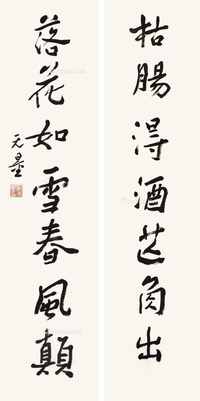 枯腸得酒芒角出
落花如雪春風顛
天墨